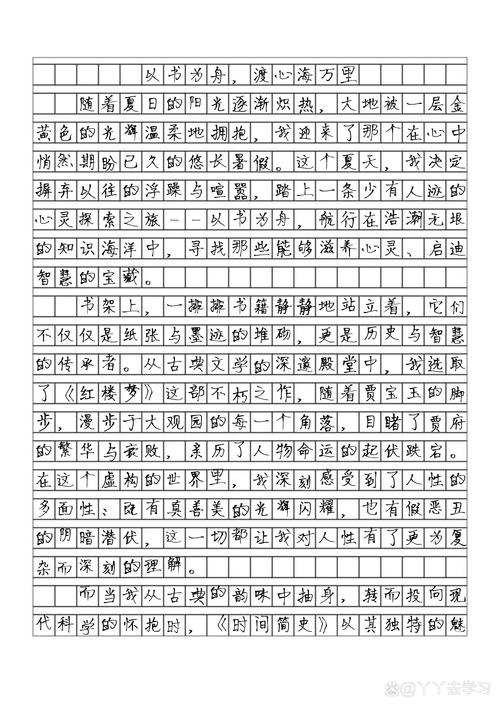 以书为舟，渡心海万里
随着夏日的阳光逐渐炽热，大地被一层金
黄色的光辉温柔地拥抱，我迎来了那个在心中
悄然期盼已久的悠长暑假。这个夏天，我决定
摒弃以往的浮躁与喧嚣，踏上一条少有人迹的
心灵探索之旅--以书为舟，航行在浩瀚无垠
的知识海洋中，寻找那些能够滋养心灵、启迪
智慧的宝藏。
书架上，一摞摞书籍静静地站立着，它们
不仅仅是纸张与墨迹的堆砌，更是历史与智慧
的传承者。从古典文学的深邃殿堂中，我选取
了《红楼梦》这部不朽之作，随着贾宝玉的脚
步，漫步于大观园的每一个角落，目睹了贾府
的繁华与衰败，亲历了人物命运的起伏跌宕。
在这个虚构的世界里，我深刻感受到了人性的
多面性、既有真善美的光辉闪耀，也有假恶丑
的阴暗潜伏，这一切都让我对人性有了更为复
杂而深刻的理解。
而当我从古典的韵味中抽身，转而投向现
代科学的怀抱时，《时间简史》以其独特的魅
@丫丫去学习